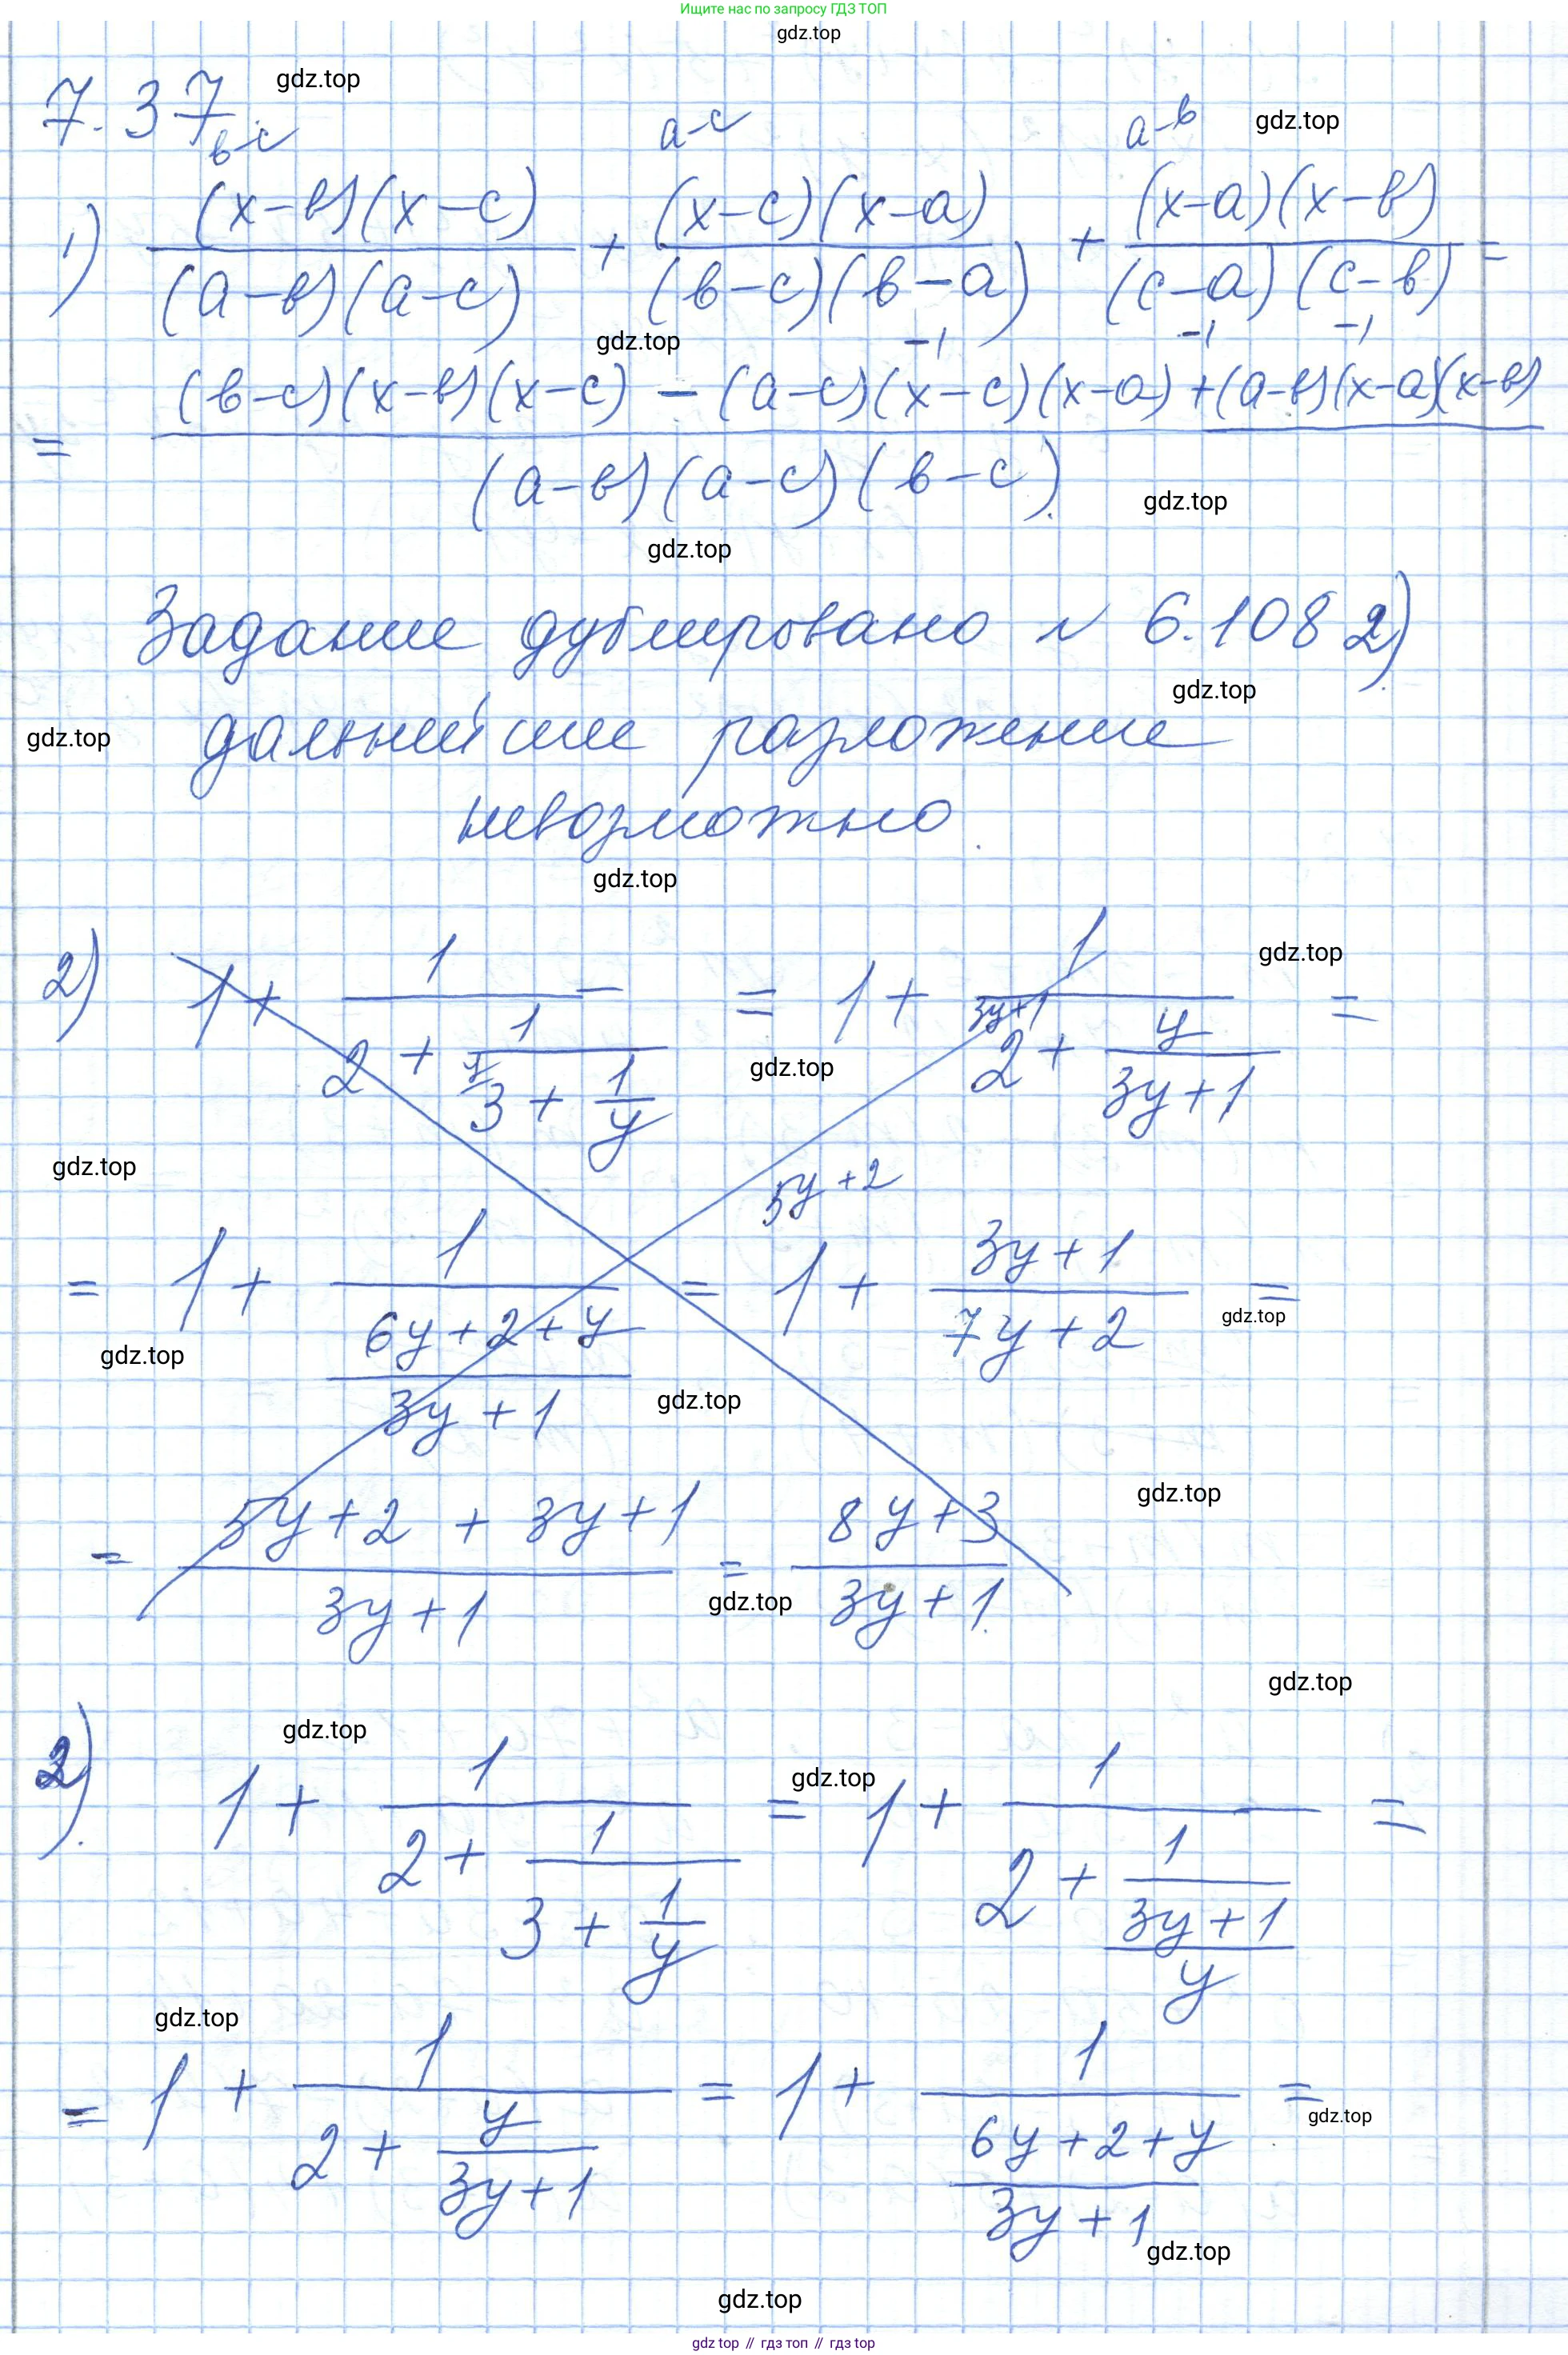 Ищите нас по запросу ГДЗ ТОП
gdz.top
7.37 gdz.top
в-с a-c a-в gdz.top
1) (x-в)(x-c)/(a-в)(a-c) + (x-c)(x-a)/(в-c)(в-a) + (x-a)(x-в)/(c-a)(c-в) =
gdz.top -1 -1 -1
= (в-c)(x-в)(x-c) - (a-c)(x-c)(x-a) + (a-в)(x-a)(x-в)/(a-в)(a-c)(в-c).
gdz.top
gdz.top
Задание дублировано N 6.108 2)
gdz.top
gdz.top дальнейшее разложение
невозможно.
gdz.top
2) 1 + 1/(2 + 1/(3 + 1/y)) = 1 + 1/(2 + y/(3y+1)) =
gdz.top
gdz.top
gdz.top
5y+2
= 1 + 1/((6y+2+y)/(3y+1)) = 1 + (3y+1)/(7y+2) =
gdz.top
gdz.top
gdz.top
gdz.top
= (5y+2 + 3y+1)/(3y+1) = (8y+3)/(3y+1).
gdz.top
gdz.top
gdz.top
2). 1 + 1/(2 + 1/(3 + 1/y)) = 1 + 1/(2 + 1/((3y+1)/y)) =
gdz.top
gdz.top
= 1 + 1/(2 + y/(3y+1)) = 1 + 1/((6y+2+y)/(3y+1)) =
gdz.top
gdz.top
gdz.top
gdz top // гдз топ // гдз top